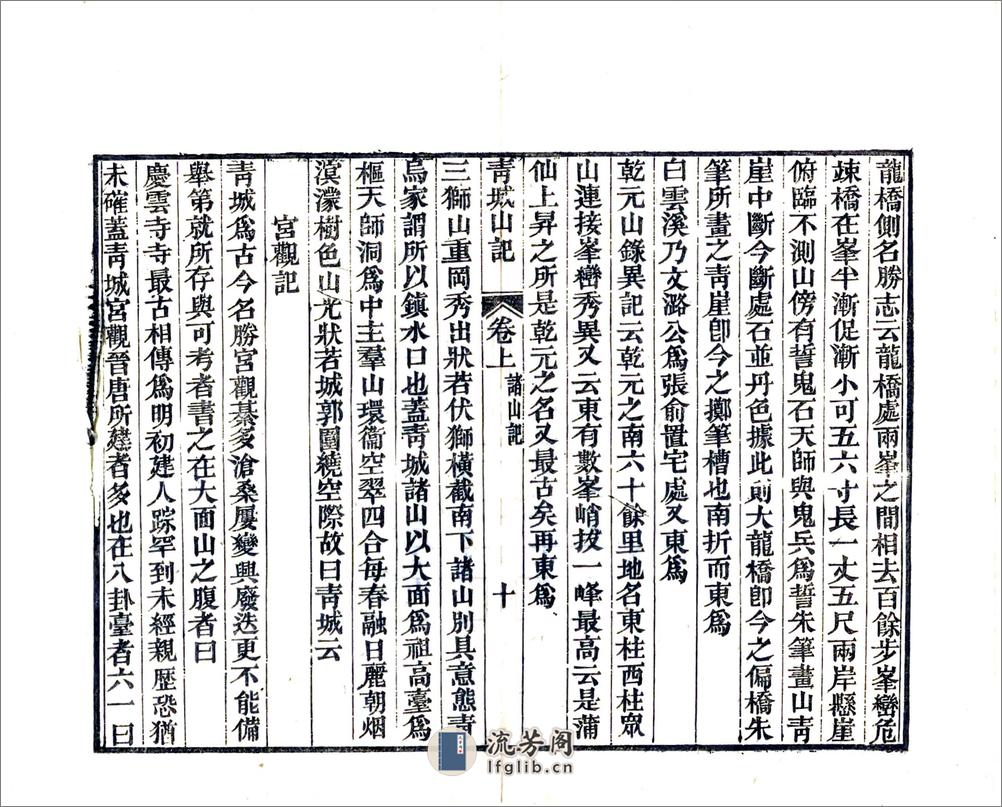 龍橋側名勝志云龍橋處兩峯之間相去百餘步峯巒危
竦橋在峯半漸促漸小可五六寸長一丈五尺兩岸懸崖
俯臨不測山傍有誓鬼石天師與鬼兵爲誓朱筆畫山靑
崖中斷今斷處石並丹色據此則大龍橋卽今之偏橋朱
筆所畫之靑崖卽今之擲筆槽也南折而東爲
白雲溪乃文潞公爲張俞置宅處又東爲
乾元山錄異記云乾元之南六十餘里地名東柱西柱眾
山連接峯巒秀異又云東有數峯峭拔一峰最高云是蒲
仙上昇之所是乾元之名又最古矣再東爲
靑城山記 卷上 諸山記 十
三獅山重岡秀出狀若伏獅橫截南下諸山別具意態靑
烏家謂所以鎮水口也蓋靑城諸山以大面爲祖高臺爲
樞天師洞爲中主羣山環衞空翠四合每春融日麗朝烟
溟濛樹色山光狀若城郭圍繞空際故曰靑城云
宮觀記
靑城爲古今名勝宮觀綦多滄桑屢變興廢迭更不能備
舉第就所存與可考者書之在大面山之腹者曰
慶雲寺寺最古相傳爲明初建人踪罕到未經親歷恐猶
未確蓋靑城宮觀晉唐所建者多也在八卦臺者六一曰
流芳阁
lfglib.cn